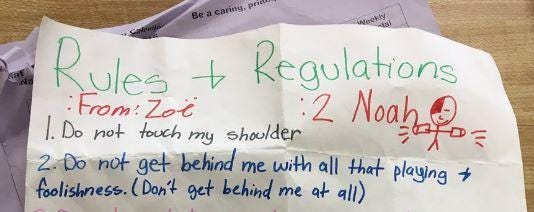 Be a caring,
Weekly
Rules + Regulations
:From: Zoë :2 Noah
1. Do not touch my shoulder
2. Do not get behind me with all that playing +
foolishness. (Don't get behind me at all)